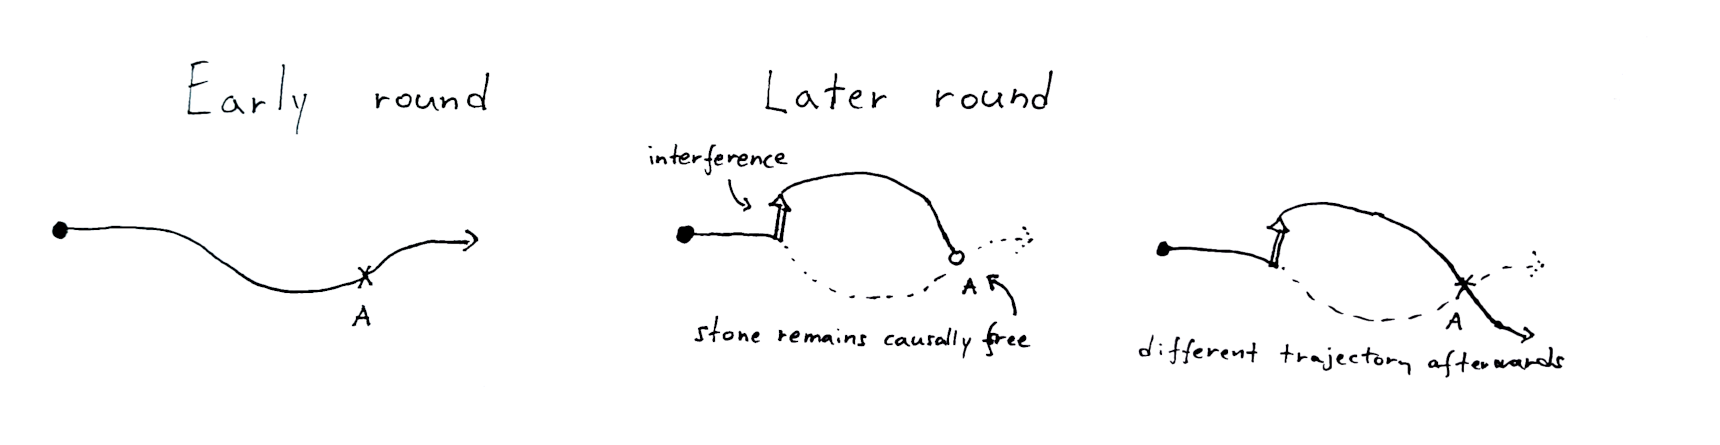 Early round
Later round
interference
A
A
stone remains causally free
A
different trajectory afterwards